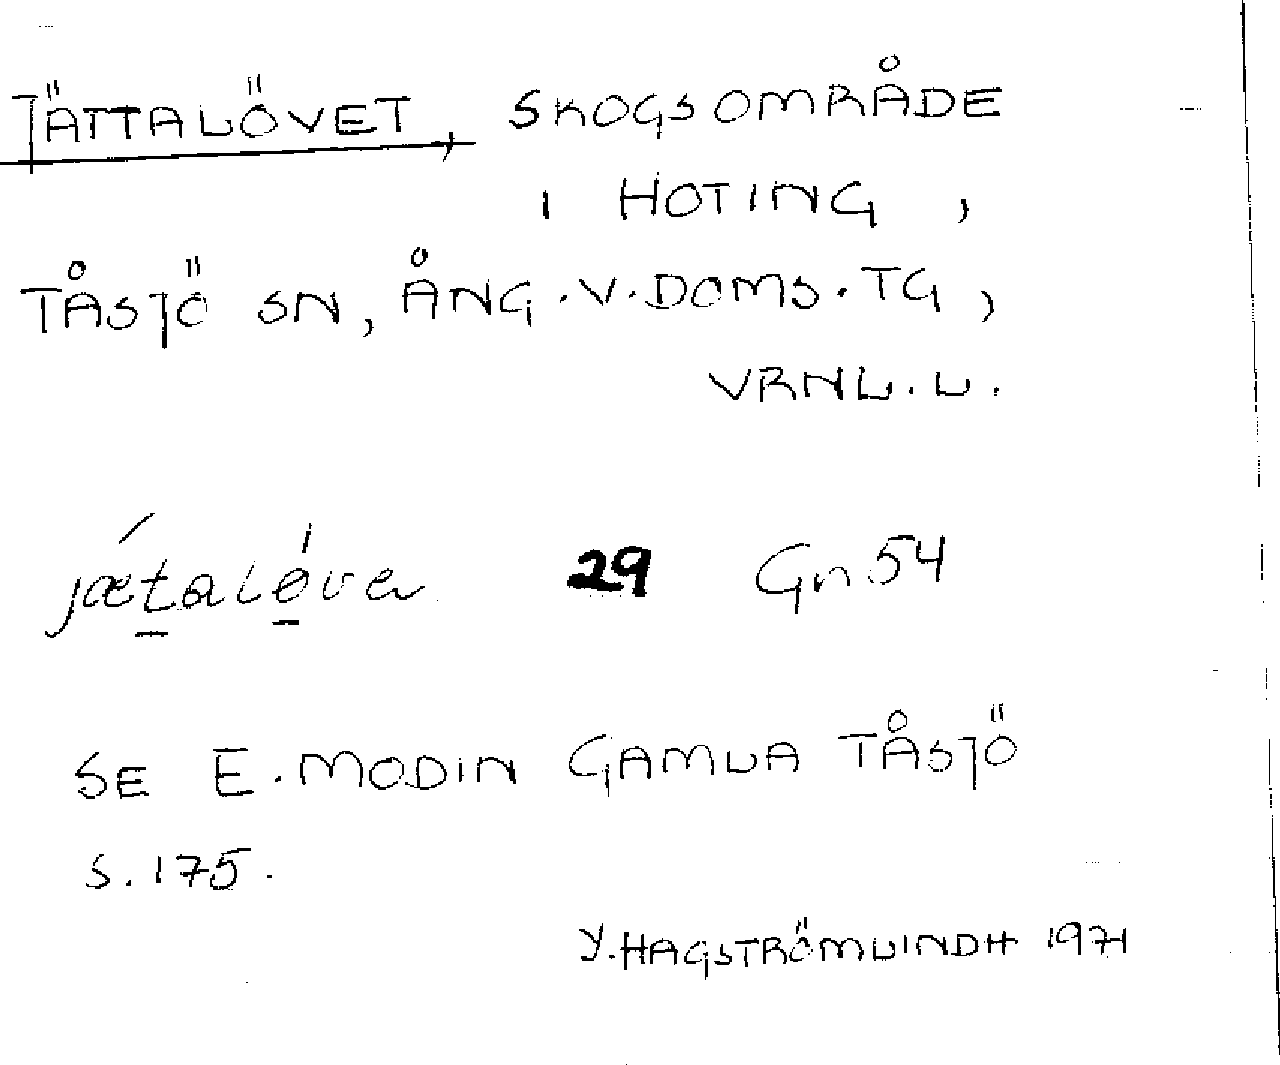 JÄTTALÖVET, SKOGSOMRÅDE
I HOTING,
TÅSJÖ SN, ÅNG.V.DOMS.TG,
VRNL.L.
jǽtaløva 29 Gn 54
SE E.MODIN GAMLA TÅSJÖ
S.175.
Y.HAGSTRÖMLINDH 1971